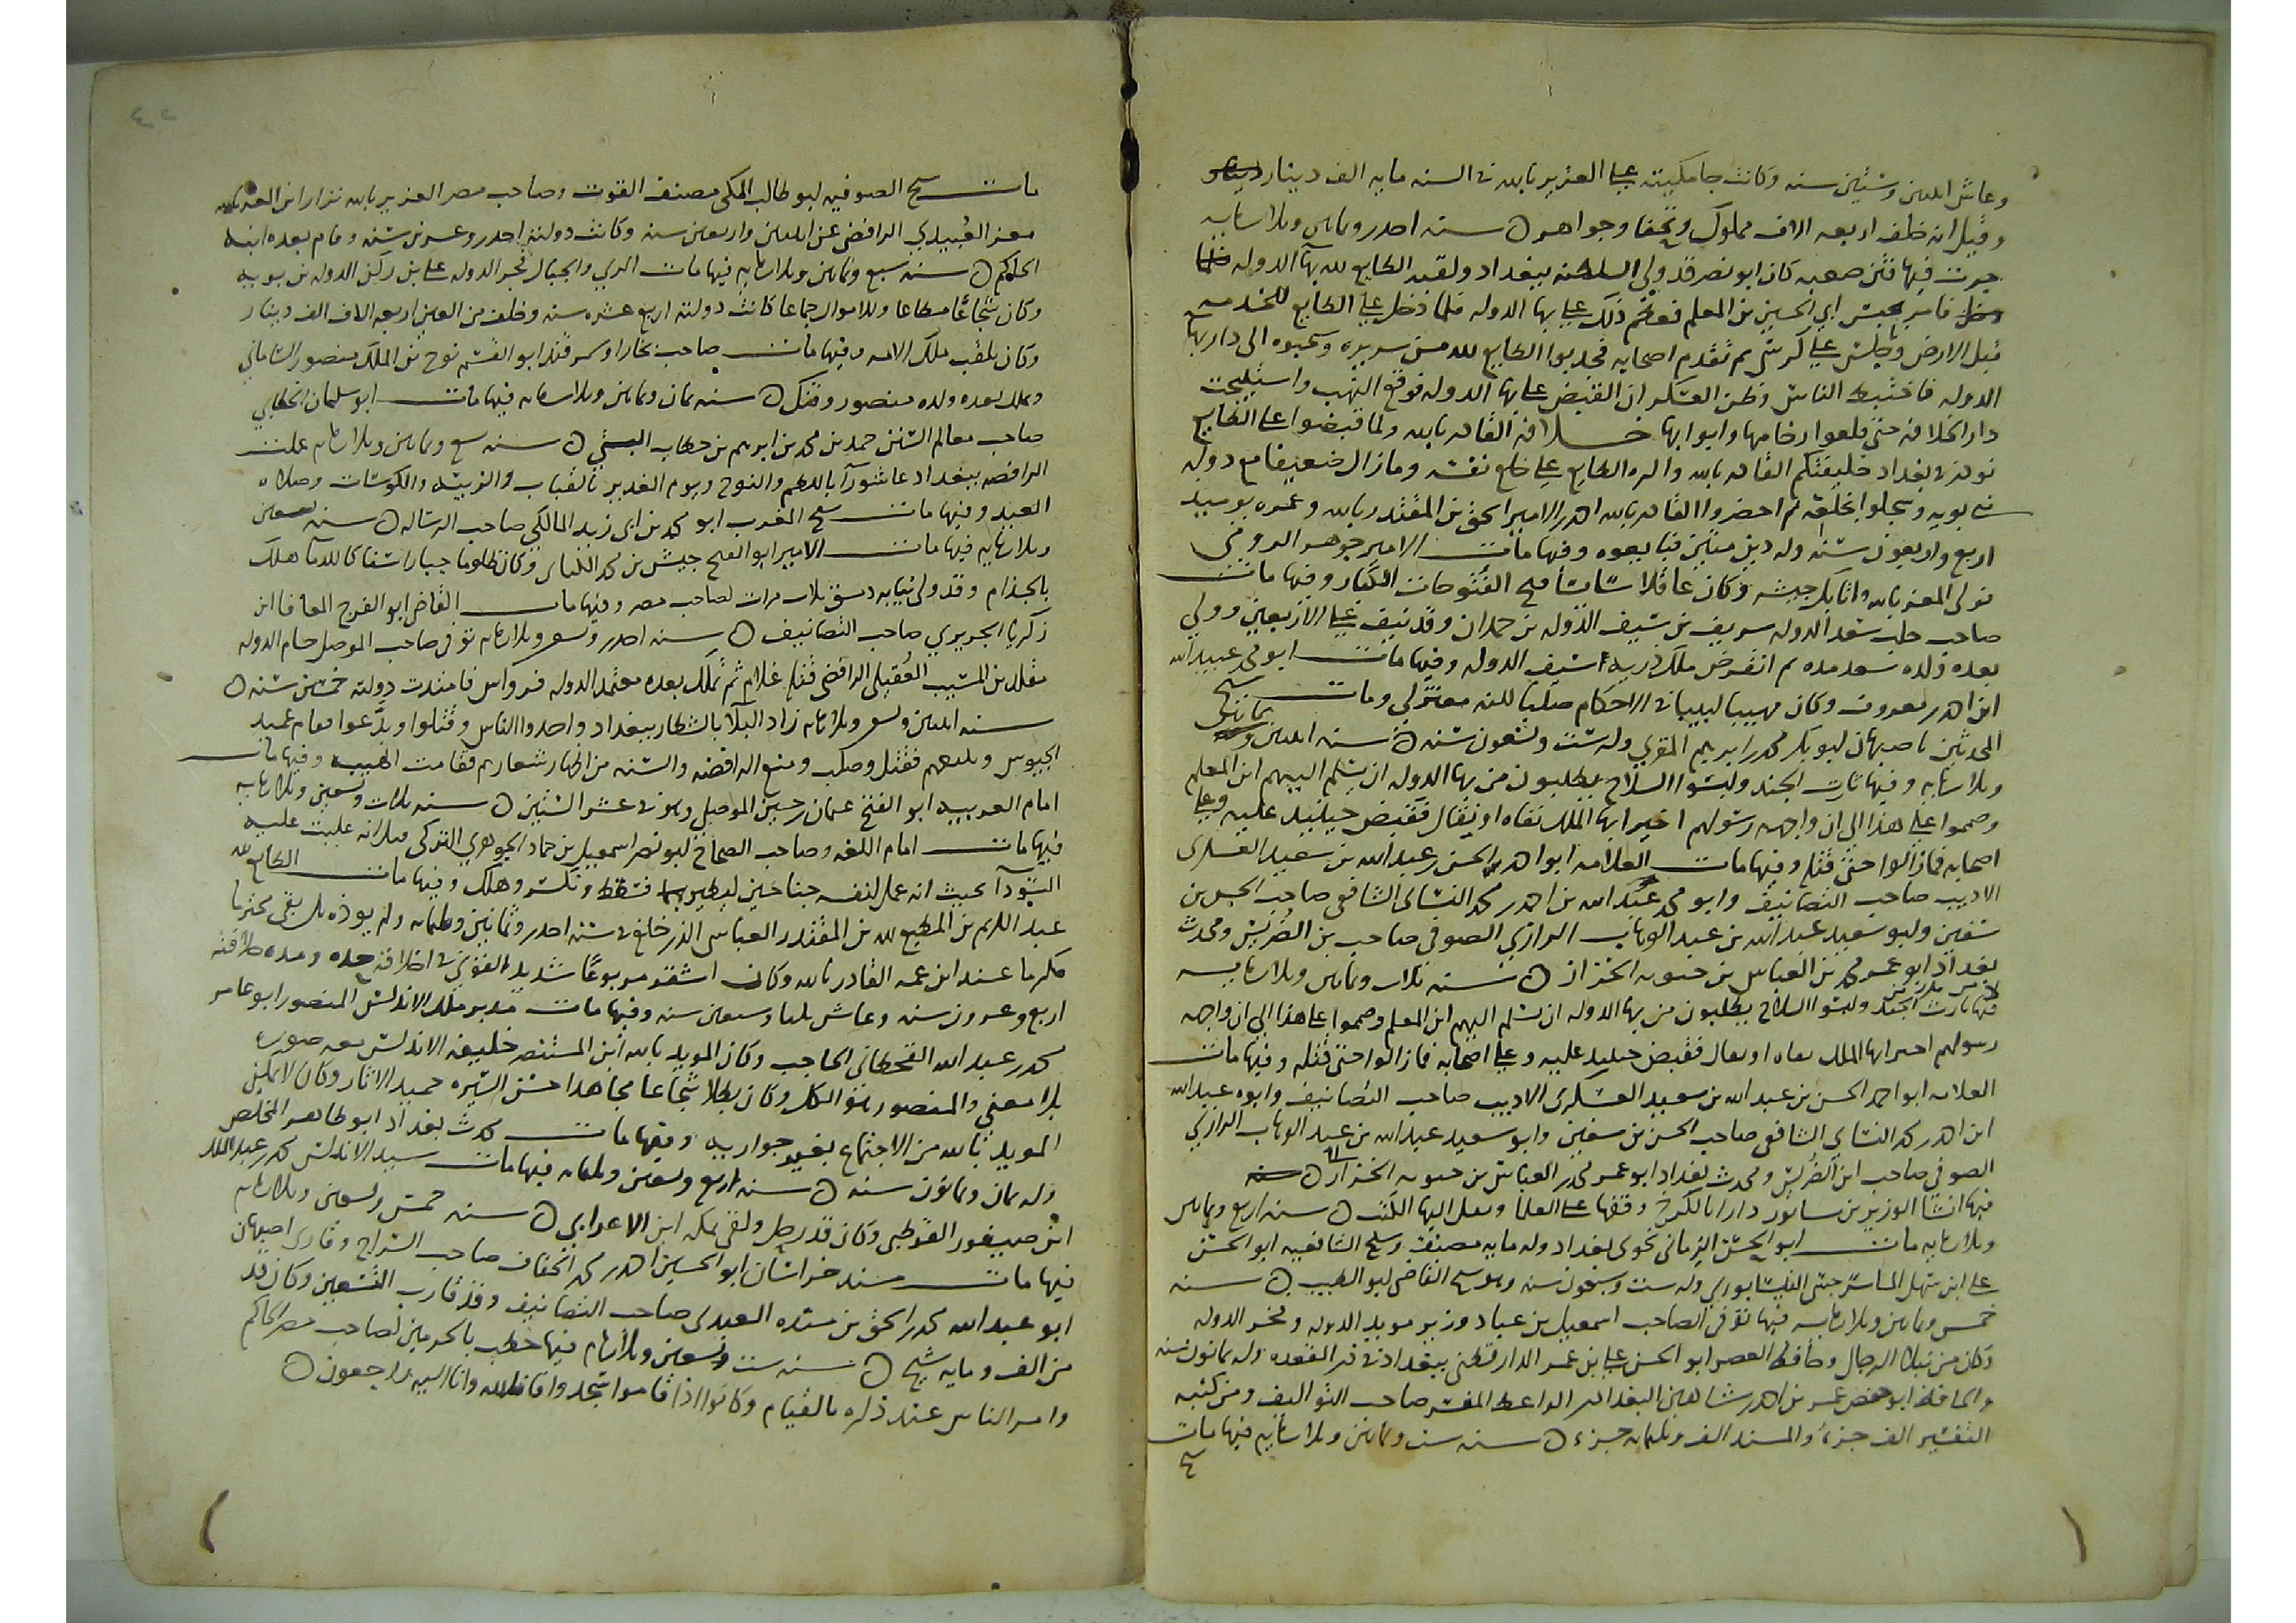 وعاش اثنين وستين سنه وكانت جامكيته على العزيز بالله في السنه مايه الف دينار
وقيل انه خلف اربعه الاف مملوك وتحفا وجواهر ه سنه احدى وثمانين وثلاثمايه
جرت فيها فتن صعبه كان ابو نصر قد ولي السلطنه ببغداد ولقبه الطايع لله بها الدوله
فامر بحبس ابي الحسين بن المعلم فعظم ذلك على بها الدوله فلما دخل على الطايع للخدمه
قبل الارض وجلس على كرسي ثم تقدم اصحابه فجذبوا الطايع لله من سريره وسحبوه الى دار بها
الدوله فاختبط الناس وظن العسكر ان القبض على بها الدوله فوقع النهب واستبيحت
دار الخلافه حتى قلعوا رخامها وابوابها خلافة القادر بالله ولما قبضوا على الطايع
نودي في بغداد خليفتكم القادر بالله واكره الطايع على خلع نفسه وما زال ضعيفا مع دوله
بني بويه وسجلوا بخلعه ثم احضروا القادر بالله احمد بن الامير اسحق بن المقتدر بالله وعمره يوميذ
اربع واربعون سنه وله دين متين فبايعوه وفيها مات الامير جوهر الرومي
مولى المعز بالله واتابك جيشه وكان عاقلا سايسا فتح الفتوحات الكبار وفيها مات
صاحب حلب سعد الدوله شريف بن سيف الدوله بن حمدان وقد نيف على الاربعين وولي
بعده ولده سعد مده ثم انقرض ملك ذريه سيف الدوله وفيها مات ابو محمد عبيد الله
ابن احمد بن معروف وكان مهيبا لبيبا في الاحكام صليبا لكنه معتزلي ومات شيخ
المحدثين باصبهان ابو بكر محمد بن ابرهيم المقري وله ست وتسعون سنه ه سنه اثنين وثمانين
وثلاثمايه وفيها ثارت الجند ولبسوا السلاح يطلبون من بها الدوله ان يسلم اليهم ابن المعلم
وصمموا على هذا الى ان واجهه رسولهم اخير ايها الملك بقاه او بقاك فقبض حينيذ عليه وعلى
اصحابه فما زالوا حتى قتله وفيها مات العلامه ابو احمد الحسن بن عبد الله بن سعيد العسكري
الاديب صاحب التصانيف وابو محمد عبد الله بن احمد بن محمد النسائي الشافعي صاحب الحسن بن
سفين وابو سعيد عبد الله بن عبد الوهاب الرازي الصوفي صاحب بن الضريس ومحدث
بغداد ابو عمر محمد بن العباس بن حيويه الخزاز ه سنه ثلاث وثمانين وثلاثمايه
فيها ثارت الجند ولبسوا السلاح يطلبون من بها الدوله ان يسلم اليهم ابن المعلم وصمموا على هذا الى ان واجهه
رسولهم اخير ايها الملك بقاه او بقاك فقبض حينيذ عليه وعلى اصحابه فما زالوا حتى قتله وفيها مات
العلامه ابو احمد الحسن بن عبد الله بن سعيد العسكري الاديب صاحب التصانيف وابوه عبد الله
ابن احمد بن محمد النسائي الشافعي صاحب الحسن بن سفين وابو سعيد عبد الله بن عبد الوهاب الرازي
الصوفي صاحب ابن الضريس ومحدث بغداد ابو عمر محمد بن العباس بن حيويه الخزاز ه
فيها انشا الوزير بن سابور دارا بالكرخ وقفها على العلما ونقل اليها الكتب ه سنه اربع وثمانين
وثلاثمايه مات ابو الحسن الرماني نحوي بغداد وله مايه مصنف وشيخ الشافعيه ابو الحسن
على ابن سهل الماسرجسي النيسابوري وله ست وسبعون سنه وهو شيخ القاضي ابو الطيب ه سنه
خمس وثمانين وثلاثمايه فيها توفي الصاحب اسمعيل بن عباد وزير مويد الدوله وفخر الدوله
وكان من نبلاء الرجال وحافظ العصر ابو الحسن على بن عمر الدارقطني ببغداد في ذي القعده وله ثمانون سنه
والحافظ ابو حفص عمر بن احمد بن شاهين البغدادي الواعظ المفسر صاحب التواليف ومن كتبه
التفسير الف جزء والمسند الف وثلثمايه جزء ه سنه ست وثمانين وثلاثمايه فيها مات
مات شيخ الصوفيه ابو طالب المكي مصنف القوت وصاحب مصر العزيز بالله نزار ابن المعز بالله
معز العبيدي الرافضي عن اثنين واربعين سنه وكانت دولته احدى وعشرين سنه وقام بعده ابنه
الحاكم ه سنه سبع وثمانين وثلاثمايه فيها مات الري والجبال فخر الدوله على بن ركن الدوله بن بويه
وكان شجاعا مطاعا وللاموال جماعا كانت دولته اربع عشره سنه وخلف من العين اربعه الاف الف دينار
وكان يلقب ملك الامه وفيها مات صاحب بخارا وسمرقند ابو القسم نوح بن الملك منصور الساماني
وملك بعده ولده منصور وقتل ه سنه ثمان وثمانين وثلاثمايه فيها مات ابو سليمان الخطابي
صاحب معالم السنن حمد بن محمد بن ابرهيم بن خطاب البستي ه سنه تسع وثمانين وثلاثمايه عملت
الرافضه ببغداد عاشورآ باللطم والنوح ويوم الغدير بالقباب والزينه والكوسات وصلاه
العيد وفيها مات شيخ المغرب ابو محمد بن ابي زيد المالكي صاحب الرساله ه سنه تسعين
وثلاثمايه فيها مات الامير ابو الفتح جيش بن محمد الكتامي وكان ظلوما جبارا سفاكا للدما هلك
بالجذام وقد ولي نيابه دمشق ثلاث مرات لصاحب مصر وفيها مات القاضي ابو الفرج المعافا ابن
زكريا الجريري صاحب التصانيف ه سنه احدى وتسعين وثلاثمايه توفي صاحب الموصل حسام الدوله
مقلد بن المسيب العقيلي الرافضي قتله غلام ثم تملك بعده معتمد الدوله قرواش فامتدت دولته خمسين سنه ه
سنه اثنين وتسعين وثلاثمايه زاد البلا بالشطار ببغداد واخذوا الناس وقتلوا وبدعوا فقام عميد
الجيوش وتتبعهم فقتل وصلب ومنع الرافضه والسنه من اظهار شعارهم فقامت الهيبه وفيها مات
امام العربيه ابو الفتح عثمان بن جني الموصلي وهو في عشر الستين ه سنه ثلاث وتسعين وثلاثمايه
فيها مات امام اللغه وصاحب الصحاح ابو نصر اسمعيل بن حماد الجوهري التركي قيل انه غلبت عليه
السودآ بحيث انه عمل لنفسه جناحين ليطير بهما فسقط وتكسر وهلك وفيها مات الطايع لله
عبد الكريم بن المطيع لله بن المقتدر العباسي الذي خلع في سنه احدى وثمانين وثلثمايه ولم يوذه بل بقي محترما
مكرما عند ابن عمه القادر بالله وكان اشقر مربوعا شديد القوي في اخلاقه حده ومده خلافته
اربع وعشرون سنه وعاش ثلثا وسبعين سنه وفيها مات مدبر ملك الاندلس المنصور ابو عامر
محمد بن عبد الله القحطاني الحاجب وكان المويد بالله ابن المستنصر خليفه الاندلس معه صوره
بلا معنى والمنصور هو الكل وكان بطلا شجاعا مجاهدا حسن السيره حميد الاثار وكان لا يمكن
المويد بالله من الاجتماع بغير جواريه وفيها مات محدث بغداد ابو طاهر المخلص
وله ثمان وثمانون سنه ه سنه اربع وتسعين وثلثمايه فيها مات سيد الاندلس محمد بن عبد الملك
ابن صيفور القرطبي وكان قد رحل ولقي بمكه ابن الاعرابي ه سنه خمس وتسعين وثلاثمايه
فيها مات مسند خراسان ابو الحسين احمد بن محمد الخفاف صاحب السراج وقاري اصبهان
ابو عبد الله محمد بن اسحق بن منده العبدي صاحب التصانيف وقد قارب التسعين وكان قد
من الف ومايه شيخ ه سنه ست وتسعين وثلاثمايه فيها خطب بالحرمين لصاحب مصر الحاكم
وامر الناس عند ذكره بالقيام وكانوا اذا قاموا سجدوا فانا لله وانا اليه راجعون ه